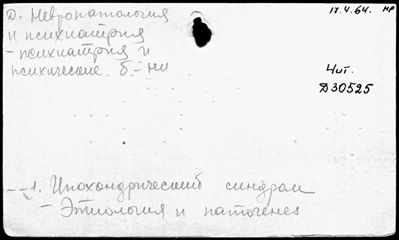 Д. Невропатология
и психиатрия
- психиатрия и
психические. б.-ни
17.4.64. нр
Чит.
Д30525
--1. Ипохондрический синдром
- Этиология и патогенез